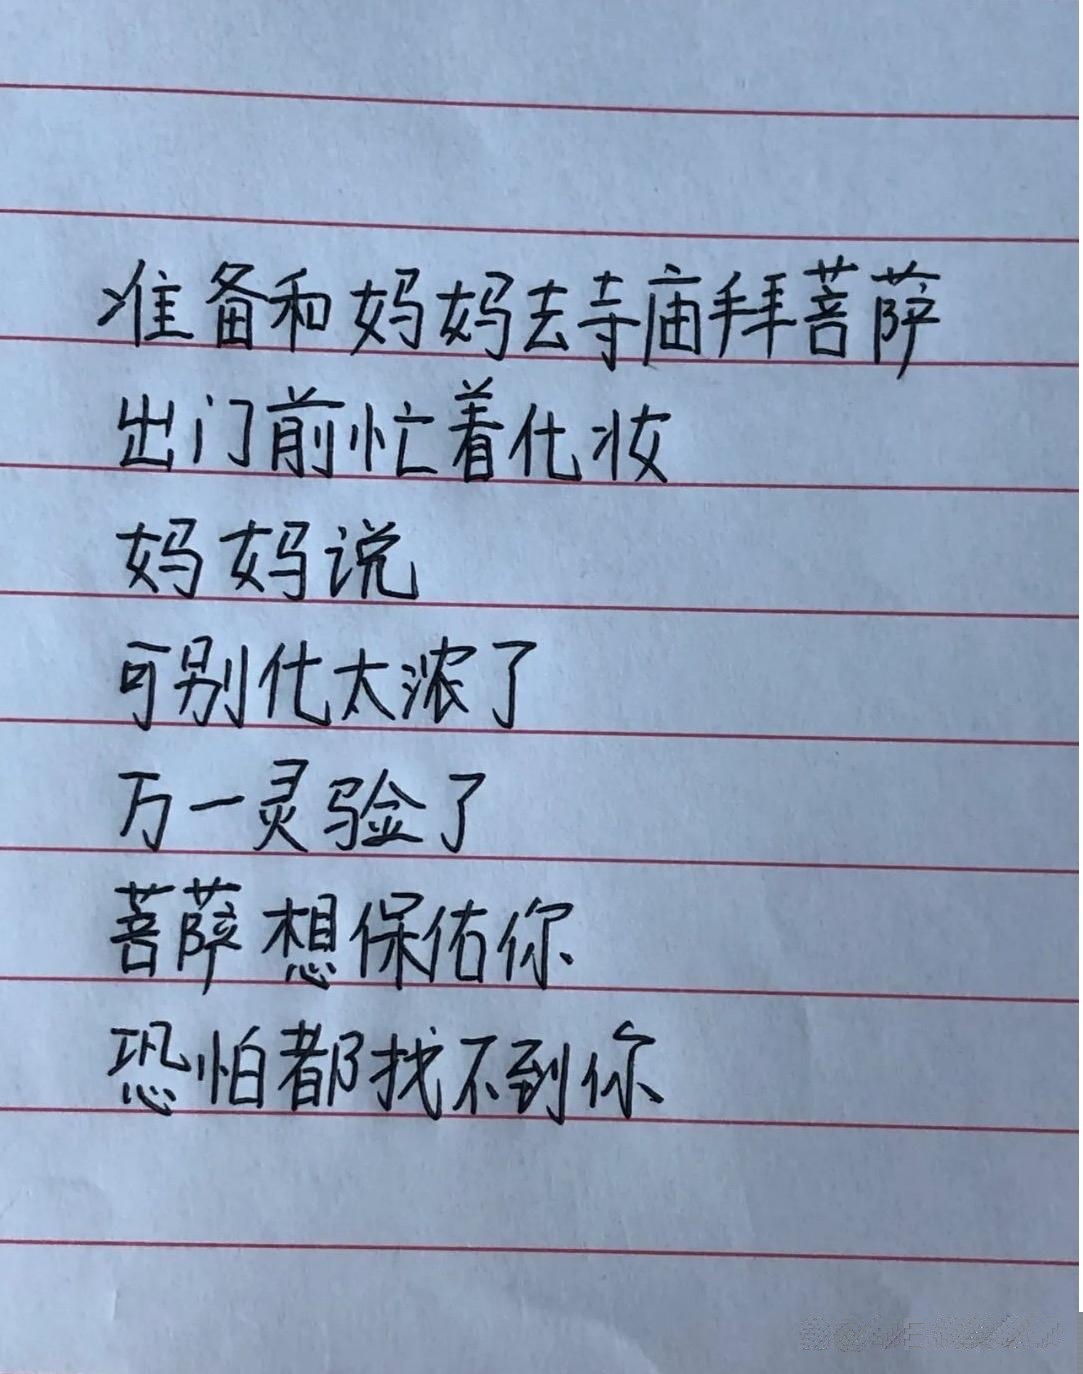 准备和妈妈去寺庙拜菩萨
出门前忙着化妆
妈妈说
可别化太浓了
万一灵验了
菩萨想保佑你
恐怕都找不到你